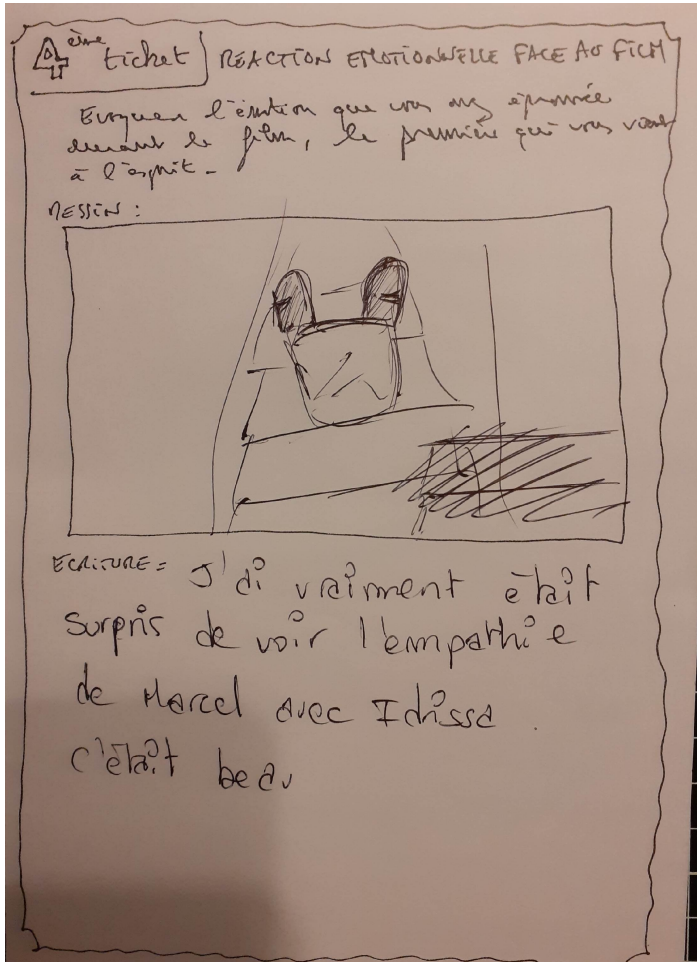 4ème ticket
REACTION EMOTIONNELLE FACE AU FILM
Evoquer l'émotion que vous avez éprouvée
durant le film, la première qui vous vient
à l'esprit.
DESSIN :
ECRITURE = J'ai vraiment était
surpris de voir l'empathie
de Marcel avec Idrissa.
c'était beau